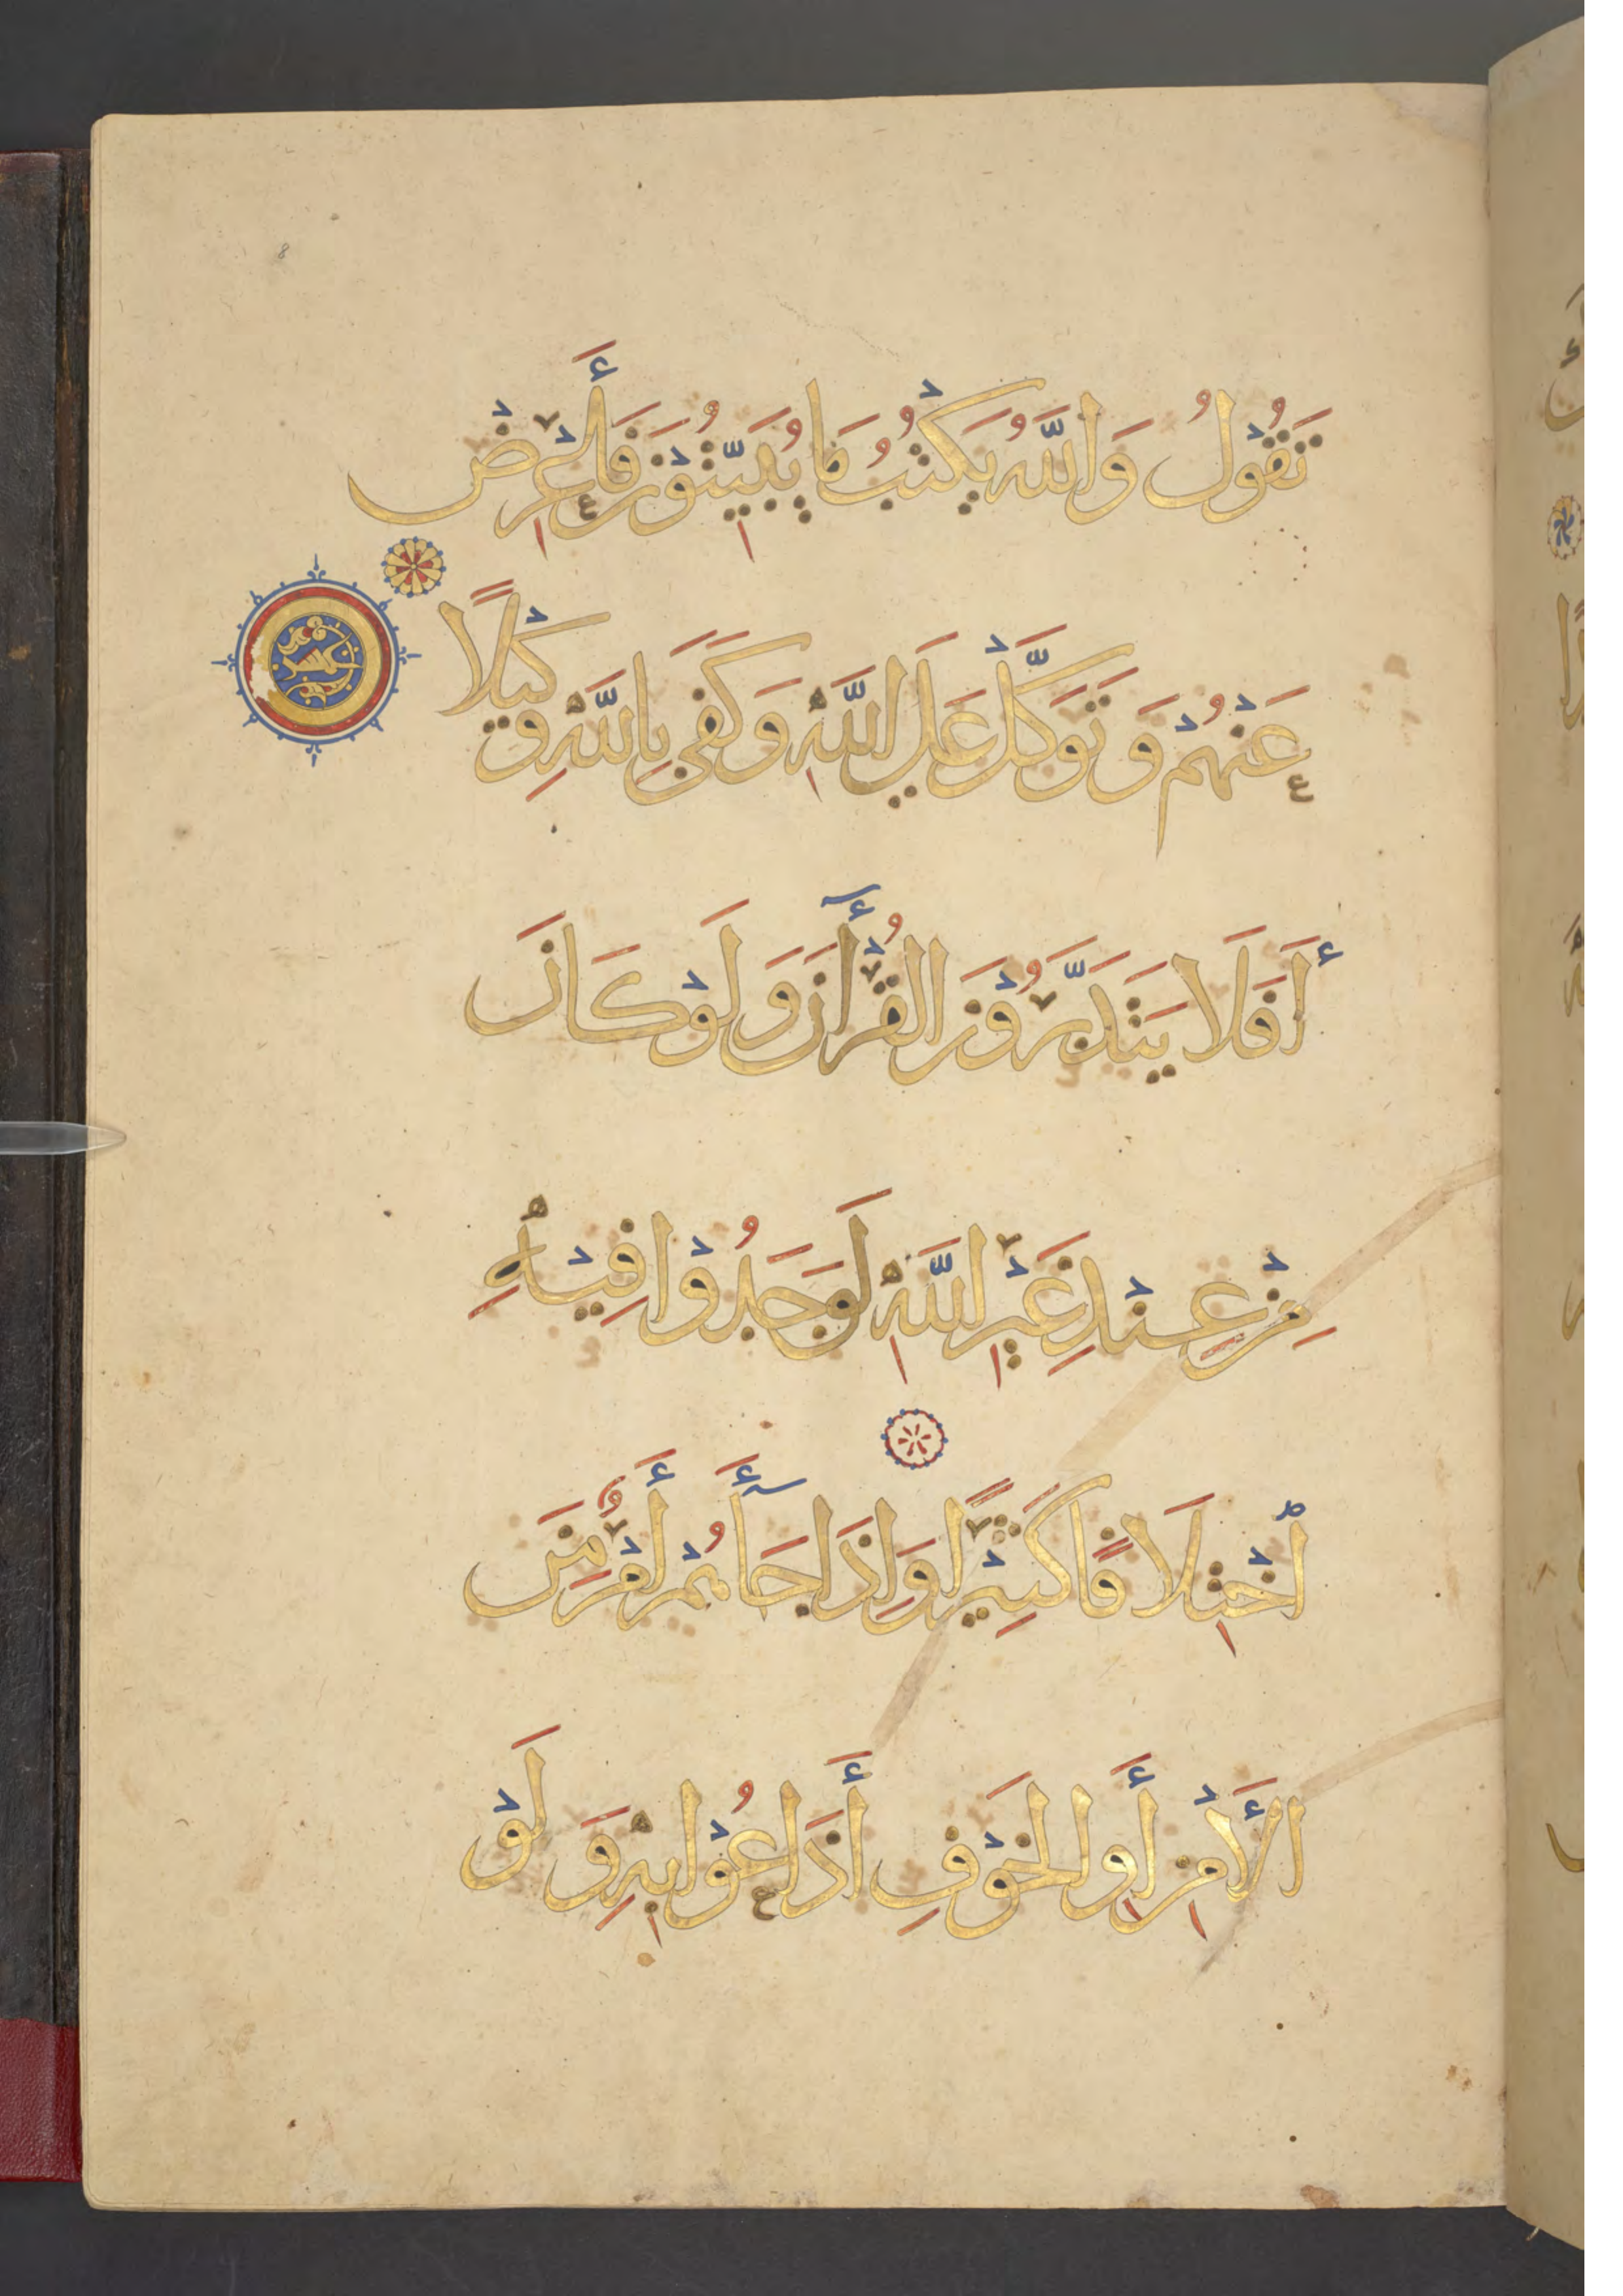 تَقُولُ وَاللَّهُ يَكْتُبُ مَا يُبَيِّتُوْنَ فَأَعْرِضْ
عَنْهُمْ وَتَوَكَّلْ عَلَى اللَّهِ وَكَفَى بِاللَّهِ وَكِيْلًا
أَفَلَا يَتَدَبَّرُوْنَ الْقُرْأٓنَ وَلَوْ كَانَ
مِنْ عِنْدِ غَيْرِ اللَّهِ لَوَجَدُوْا فِيْهِ
اخْتِلَافًا كَثِيْرًا وَإِذَا جَآءَهُمْ أَمْرٌ مِنَ
الْأَمْنِ أَوِ الْخَوْفِ أَذَاعُوْا بِهِ وَلَوْ
8